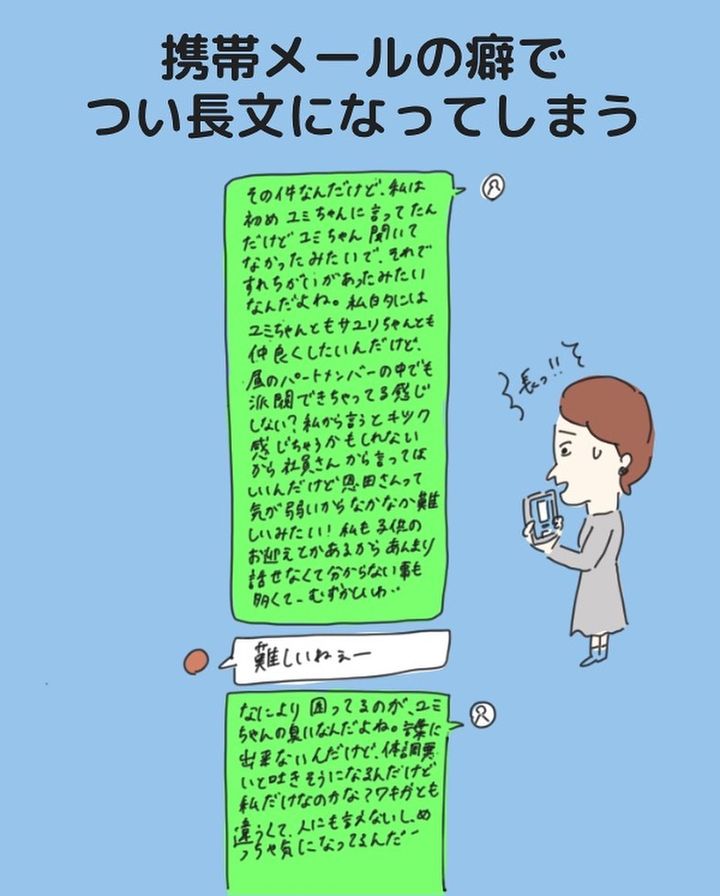 携帯メールの癖で
つい長文になってしまう
その件なんだけど、私は
初めユミちゃんに言ってたん
だけどユミちゃん聞いて
なかったみたいで、それで
すれちがいがあったみたい
なんだよね。私的には
ユミちゃんともサユリちゃんとも
仲良くしたいんだけど、
昼のパートメンバーの中でも
派閥できちゃってる感じ
しない?私から言うとキツク
感じちゃうかもしれない
から社員さんから言ってほ
しいんだけど恩田さんって
気が弱いからなかなか難
しいみたい!私も子供の
お迎えとかあるからあんまり
話せなくて分からない事も
多くて、むずかしいわ…
長っ!!
難しいねぇー
なにより困ってるのが、ユミ
ちゃんの臭いなんだよね。言葉に
出来ないんだけど、体調悪
いと吐きそうになるんだけど
私だけなのかな?ワキガとも
違うくて、人にも言えないし、め
っちゃ気になってるんだ…